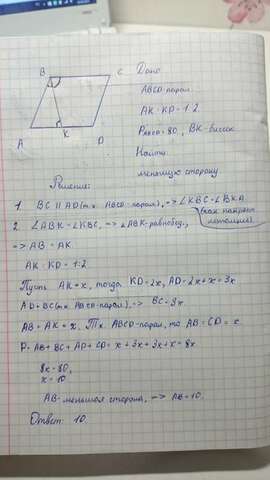 B C
A K D
Дано
ABCD-парал.
AK:KD=1:2
Pабсд=80, BK-биссек.
Найти:
меньшую сторону.
Решение:
1. BC || AD (т.к. ABCD-парал.), => ∠KBC=∠BKA
(как накрест лежащие)
2. ∠ABK=∠KBC, => △ABK-равнобед.,
=> AB=AK.
AK:KD=1:2
Пусть AK=x, тогда KD=2x, AD=2x+x=3x
AD=BC (т.к. ABCD-парал.), => BC=3x
AB=AK=x. Т.к. ABCD-парал, то AB=CD=x
P=AB+BC+AD+CD=x+3x+3x+x=8x
8x=80,
x=10
AB-меньшая сторона, => AB=10.
Ответ: 10.